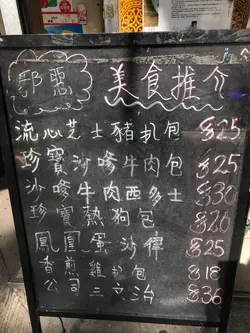 美食推介
流心芝士豬扒包 $25
珍寶沙嗲牛肉包 $25
沙嗲牛肉西多士 $30
珍寶熱狗包 $20
鳳凰蛋沙律 $25
香煎雞扒包 $18
公司三文治 $36